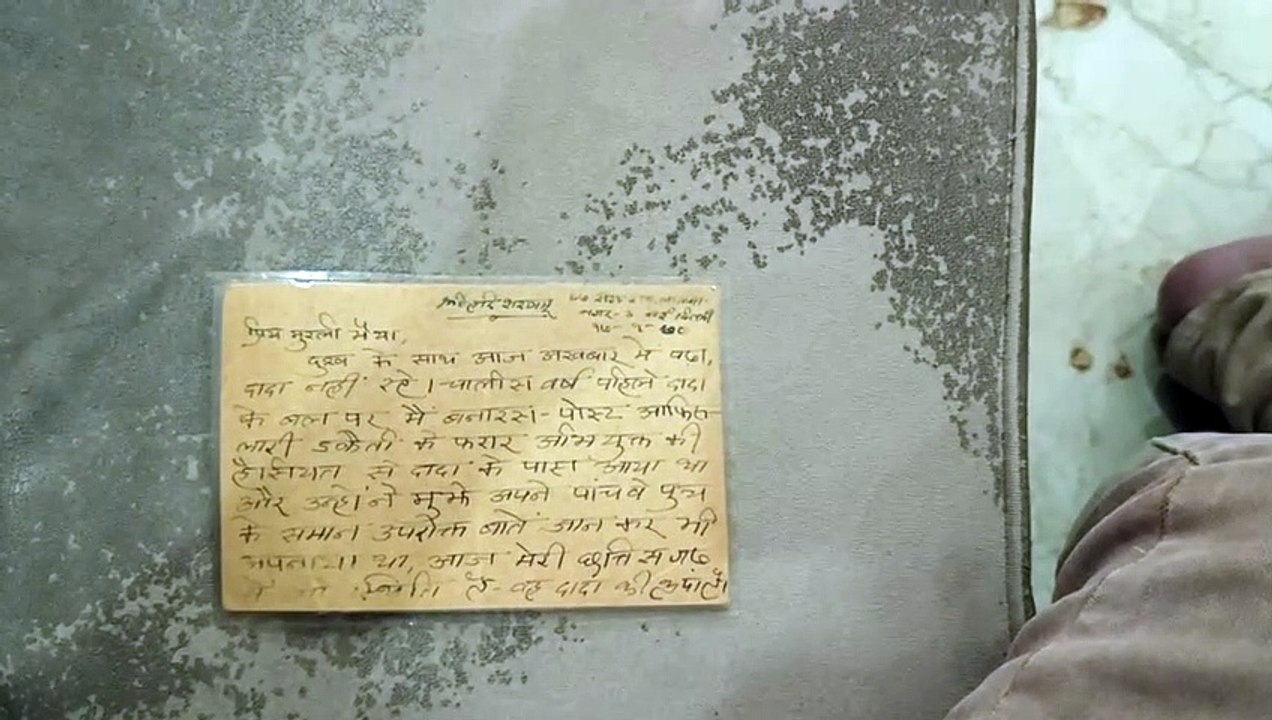 नगर-३ नई दिल्ली
प्रिय मुरली भैया,
दुख के साथ आज अखबार मे पढा,
दादा नहीं रहे। चालीस वर्ष पहिले दादा
के बल पर मैं बनारस- पोस्ट आफिस
लारी डकैती के फरार अभियुक्त की
हैसियत से दादा के पास आया था
और उन्होंने मुझे अपने पांचवे पुत्र
के समान उपरोक्त बातें जान कर भी
अपनाया था, आज मेरी छत्तिसगढ
स्थिति है- वह दादा की